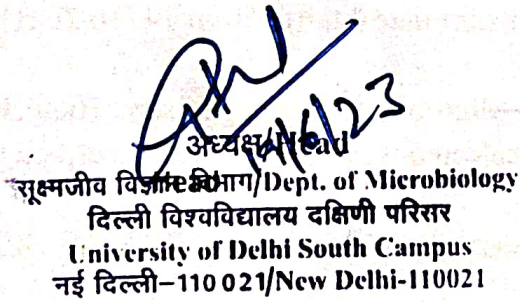 14/6/23
अध्यक्ष/Head
सूक्ष्मजीव विज्ञान विभाग/Dept. of Microbiology
दिल्ली विश्वविद्यालय दक्षिणी परिसर
University of Delhi South Campus
नई दिल्ली-110 021/New Delhi-110021